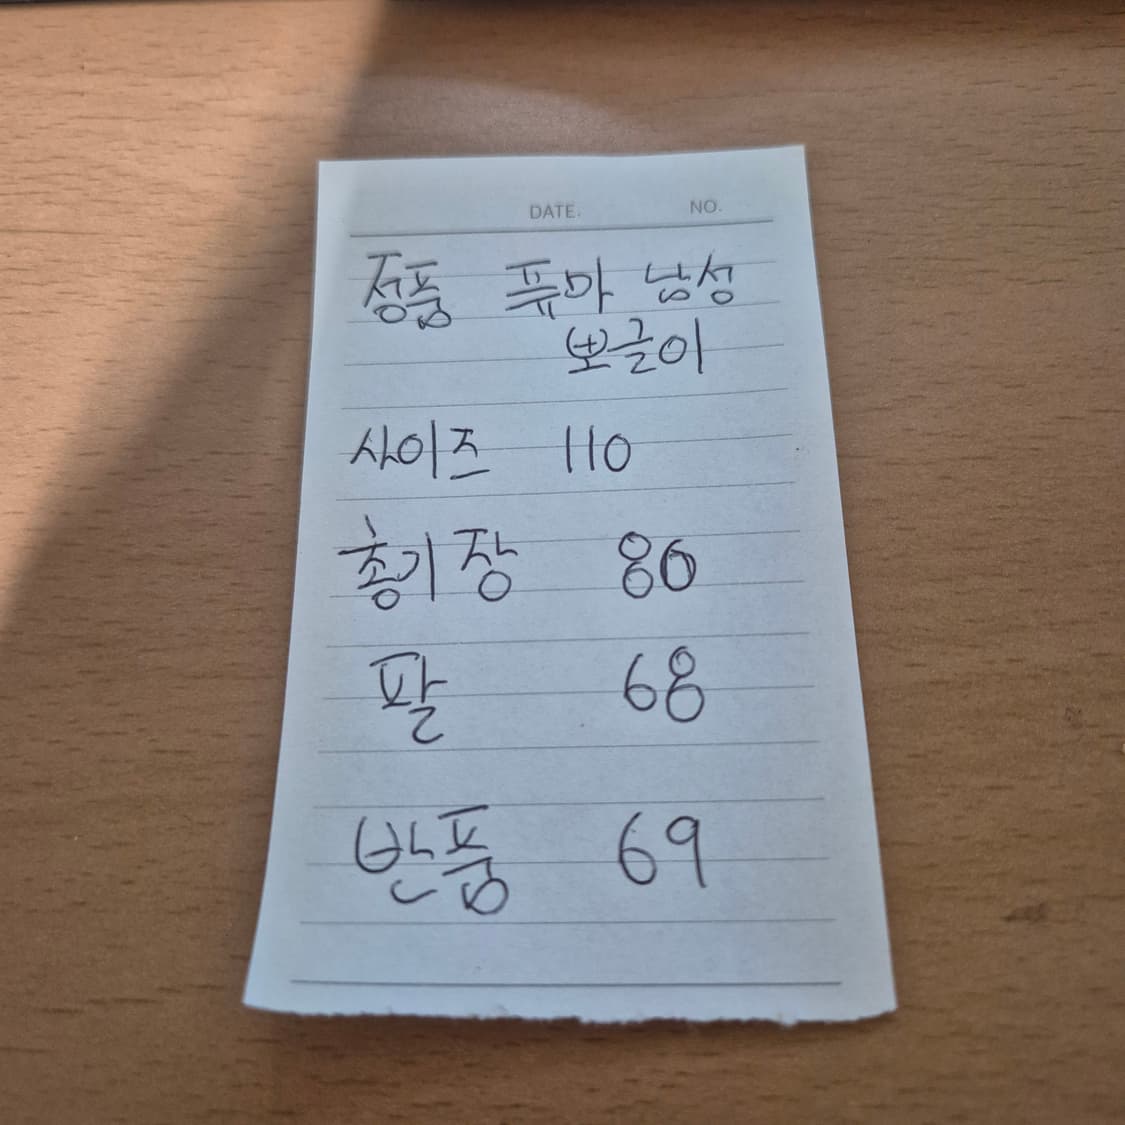 DATE. NO.
정품 퓨마 남성
뽀글이
사이즈 110
총기장 80
팔 68
반품 69